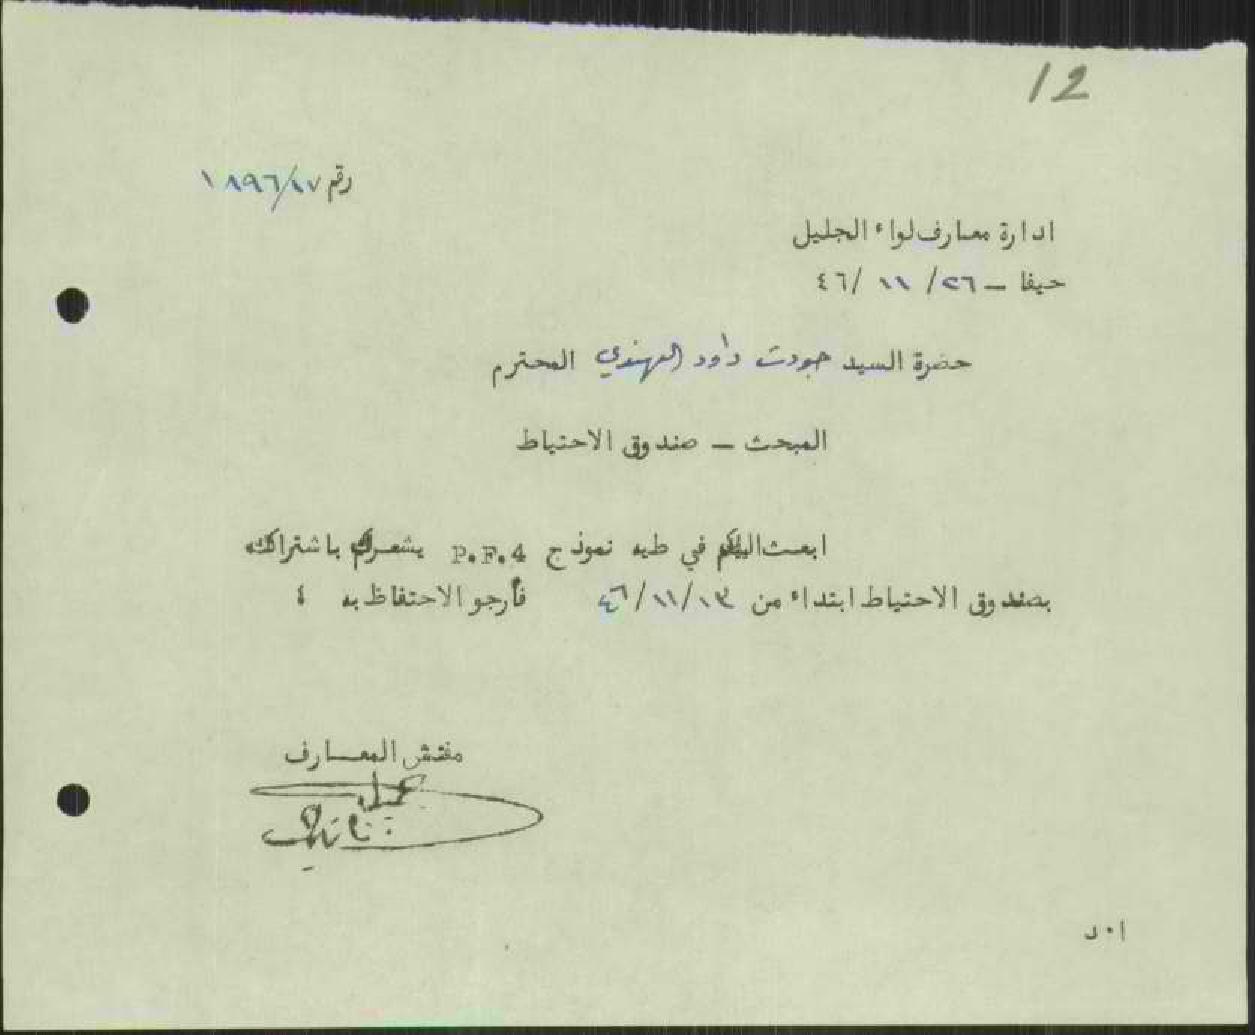 12
رقم ١٨٩٦/١٧
ادارة معارف لواء الجليل
حيفا – ٢٦/ ١١ /٤٦
حضرة السيد جودت داود الهندي المحترم
المبحث – صندوق الاحتياط
ابعث اليكم في طيه نموذج P.F.4 يشعركم باشتراككم
بصندوق الاحتياط ابتداء من ١٣/١١/٤٦ فأرجو الاحتفاظ به ٤
مفتش المعارف
ا٠د